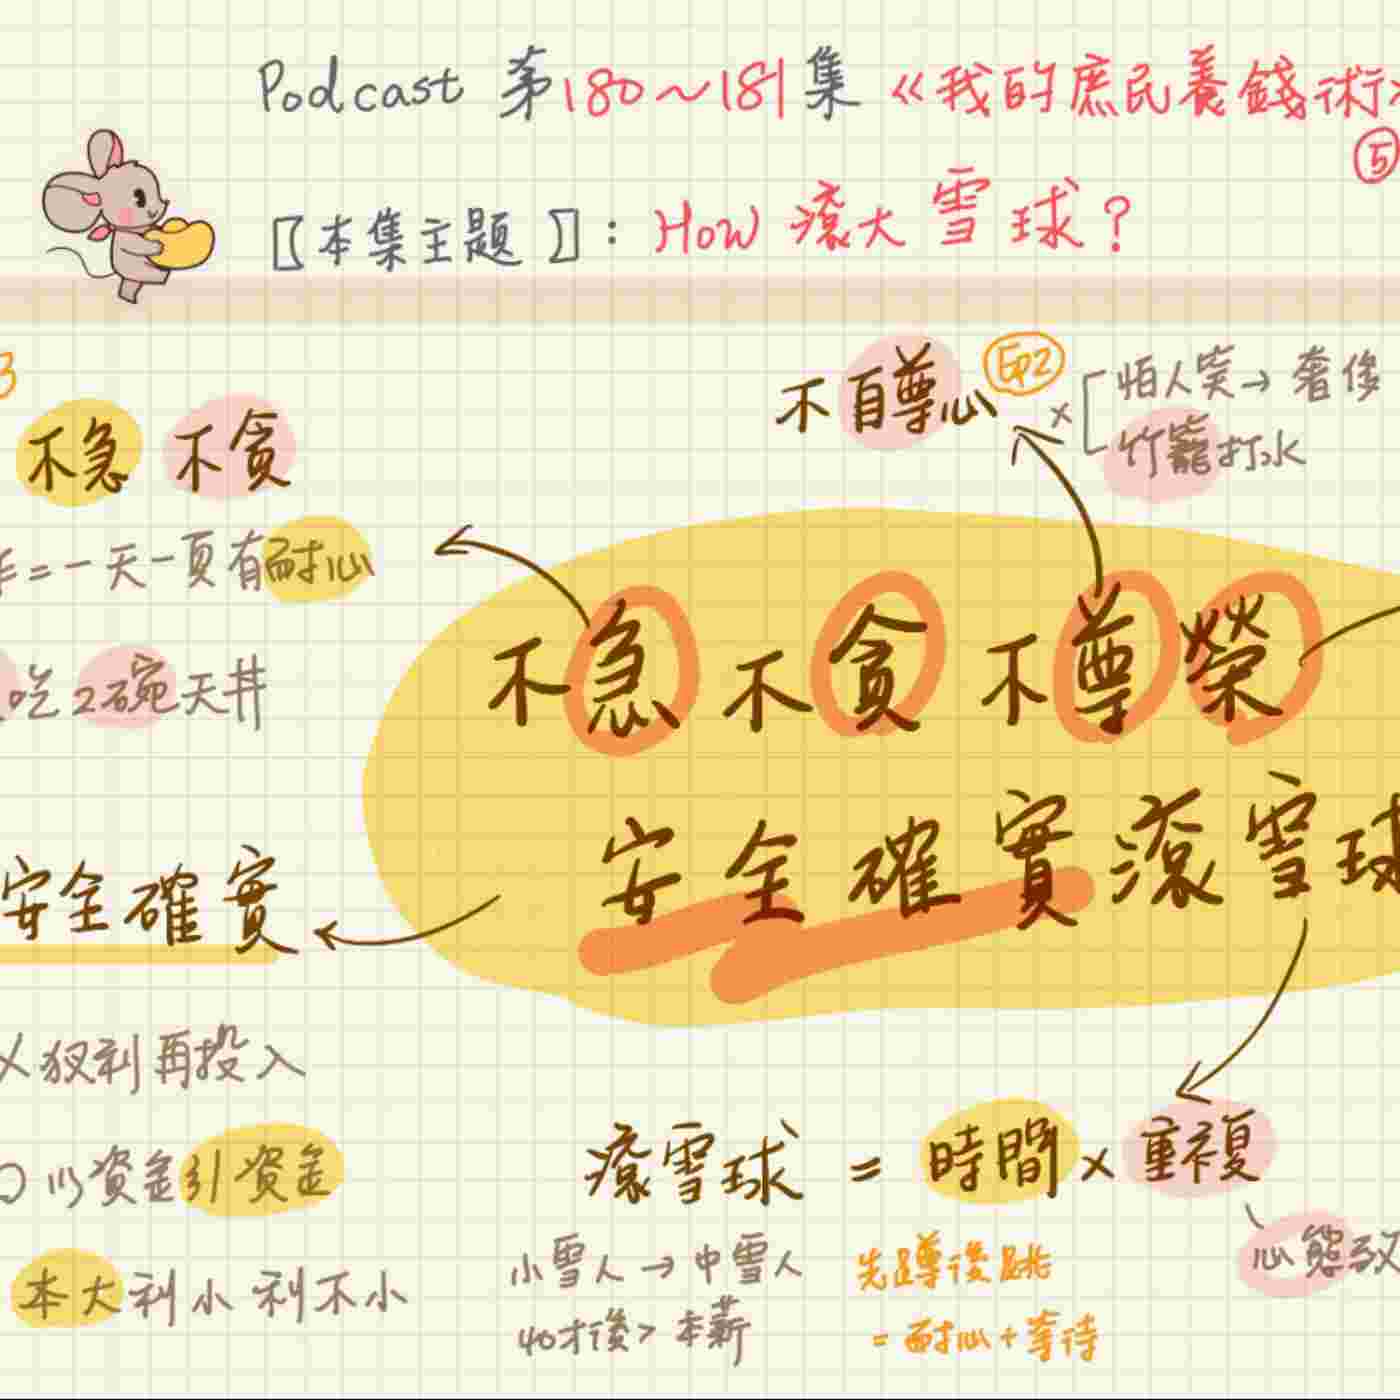 Podcast 第180~181集《我的庶民養錢術》
⑤
〖本集主題〗: How 滾大雪球?
3
不自尊心 Ep2
× 怕人笑→奢侈
竹籠打水
不急 不貪
=一天一頁有耐心
吃2碗天丼
不急不貪不尊榮
安全確實滾雪球
安全確實
×祋利再投入
以資金引資金
本大利小利不小
滾雪球 = 時間 × 重複
小雪人→中雪人
40才後>本薪
先蹲後跳
=耐心+等待
心態致